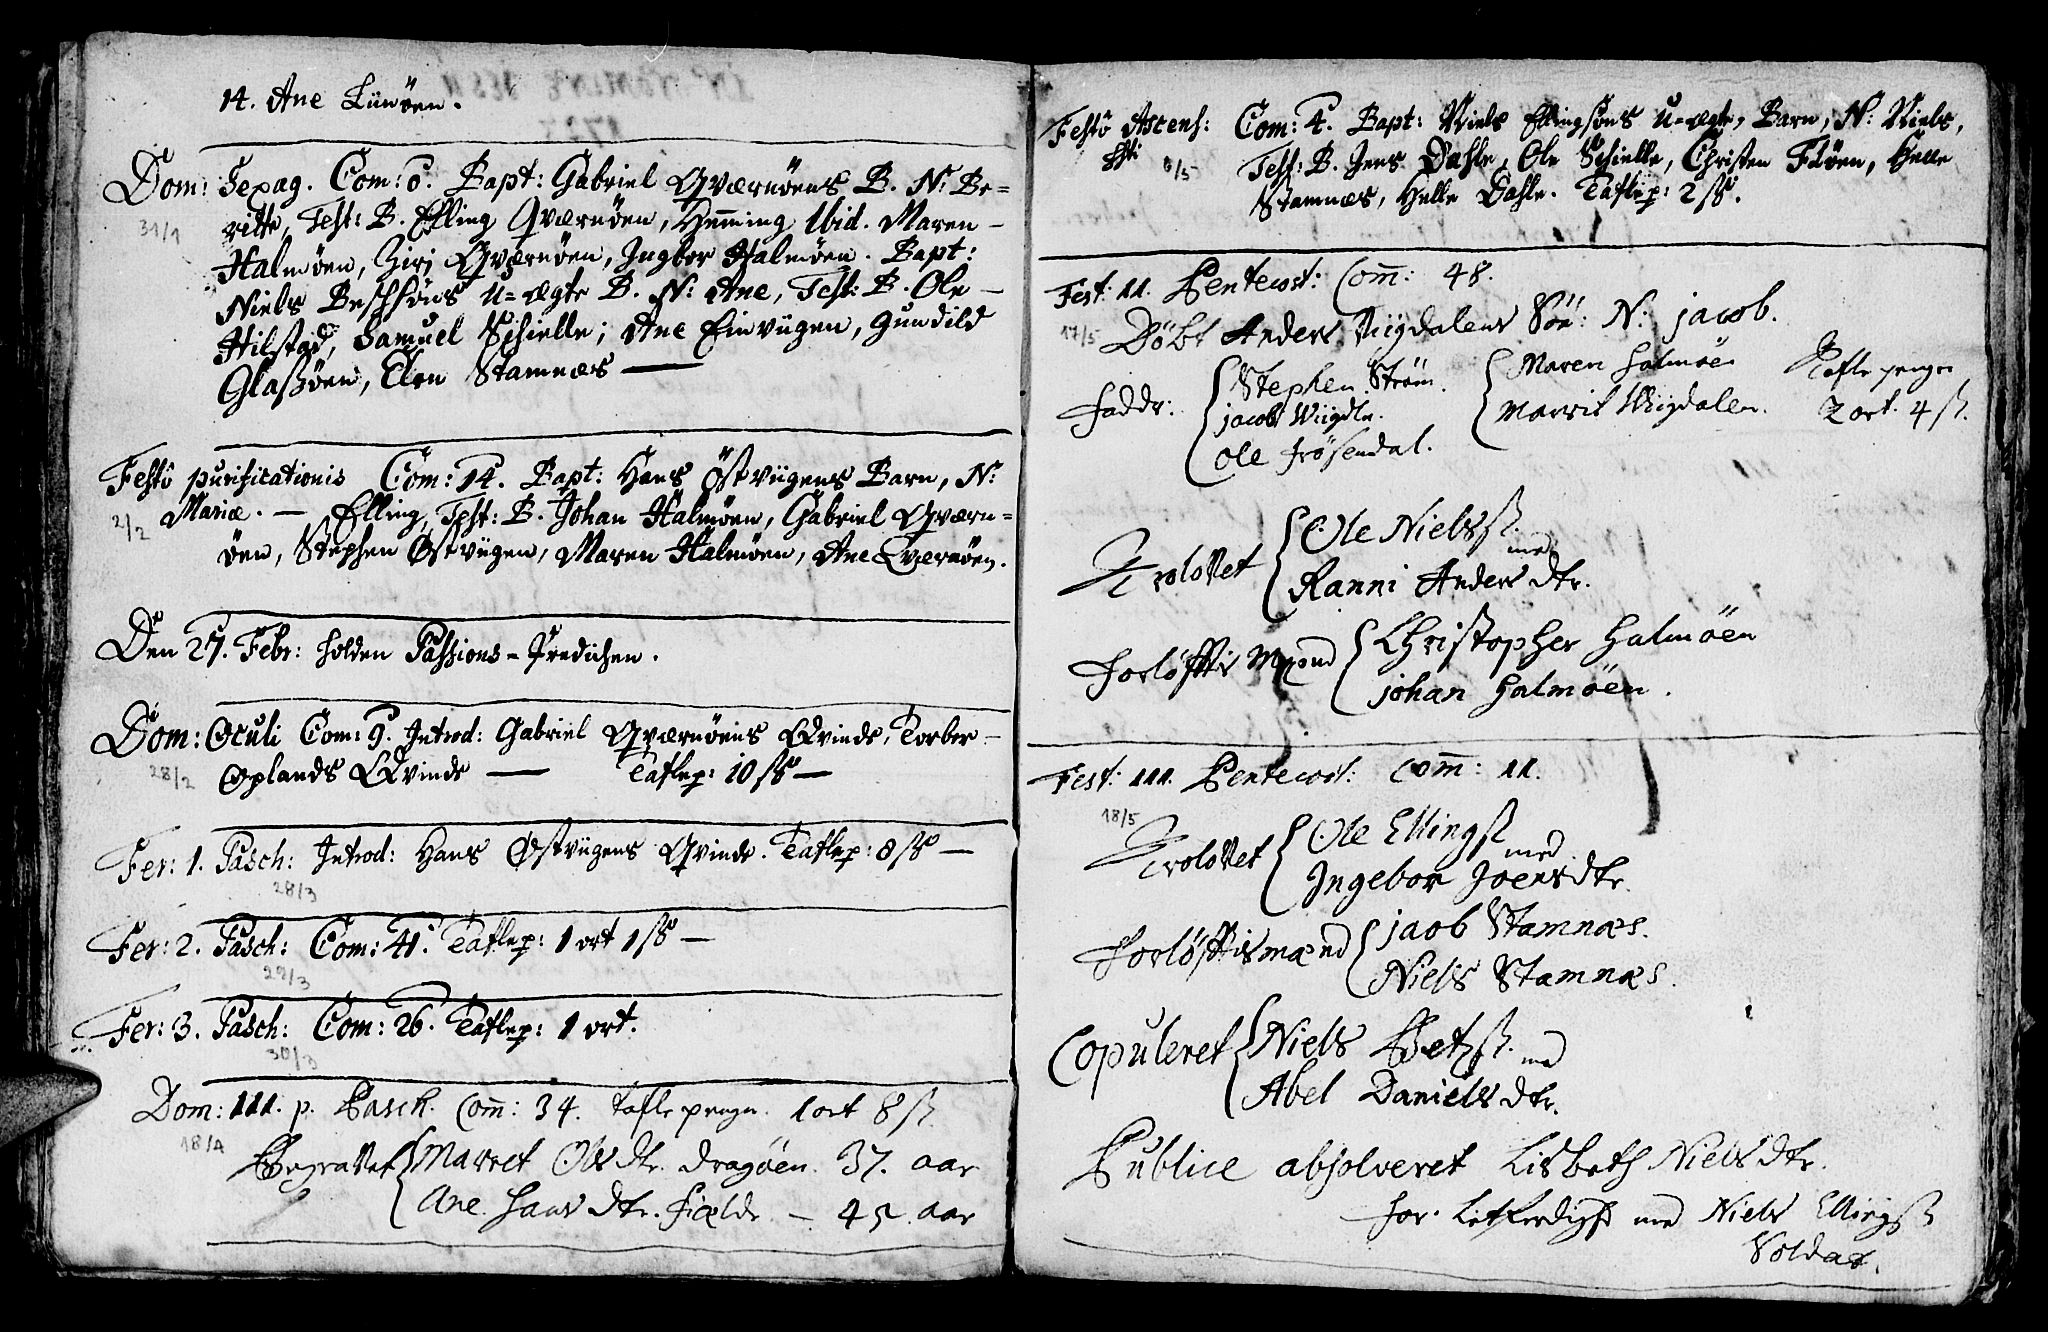 14. Ane Lunöen.
Dom: Sexag. Com: 6. Bapt: Gabriel Qværnöens B. N: Be=
31/1
ritte, Test: B. Elling Qværnöen, Hem̄ing Ibid. Maren
Halmöen, Giri Qværnöen, Ingbor Halmöen. Bapt:
Niels U=ægte B. N: Ane, Test: B. Ole
Hilstad, Samuel Schielle; Ane Einvügen, Gundild
Glasöen, Elen Stamnæs
Festo purificationis Com: 14. Bapt: Hans Östviigens Barn, N:
Mariæ. — Elling, Test: B. Johan Halmöen, Gabriel Qværn=
2/2
öen, Stephen Östviigen, Maren Halmöen, Ane Qværnöen.
Den 27. Febr: holden Passions-Predichen.
Dom: Oculi Com: 9. Introd: Gabriel Qværnöens Qvinde, Torber
28/2
Oplands Qvinde — Taflep: 10 ß —
Fer: 1. Pasch: Introd: Hans Östviigens Qvinde. Taflep: 8 ß —
28/3
Fer: 2. Pasch: Com: 41. Taflep: 1 ort 1 ß —
29/3
Fer: 3. Pasch: Com: 26. Taflep: 1 ort.
30/3
Dom: III. p. Pasch. Com̄: 34. Tafle penge. 1 ort 8 ß.
18/4
Begravet { Marret Ols dtr. dragöen. 37. aar
Ane. Hans dtr. Fielde — 45. aar
Festo Ascens: Com: 4. Bapt: Niels Ellingsöns U=ægte, Barn, N: Niels,
6/5
Test: B. Jens Dahle, Ole Schielle, Christen Flöen, Helle
Stamnæs, Helle Dahle. Taflep: 2 ß.
Fest: II. Pentecost: Com̄: 48.
17/5
Döbt Anders Viigdalens Sön: N: jacob.
Faddr: { Stephen Ström.
jacob Viigdln.
Ole Frösendal.
{ Maren Halmöen
Marrit Viigdalen.
Tafle penge
2 ort. 4 ß.
Trolovet { Ole Nielsß. med
Ranni Anders dtr.
Forlöffts Mænd { Christopher Halmöen
johan Halmöen.
Fest: III. Pentecost: Com̄: 11.
18/5
Trolovet { Ole Ellingß med
Ingebor Joens dtr.
Forlöfftismænd { jaob Stamnæs.
Niels Stamnæs.
Copuleret { Niels Petß. med
Abel Daniels dtr.
Publice absolveret Lisbeth Niels dtr.
for. Letferdighd med Niels Ellingß
Soldat.